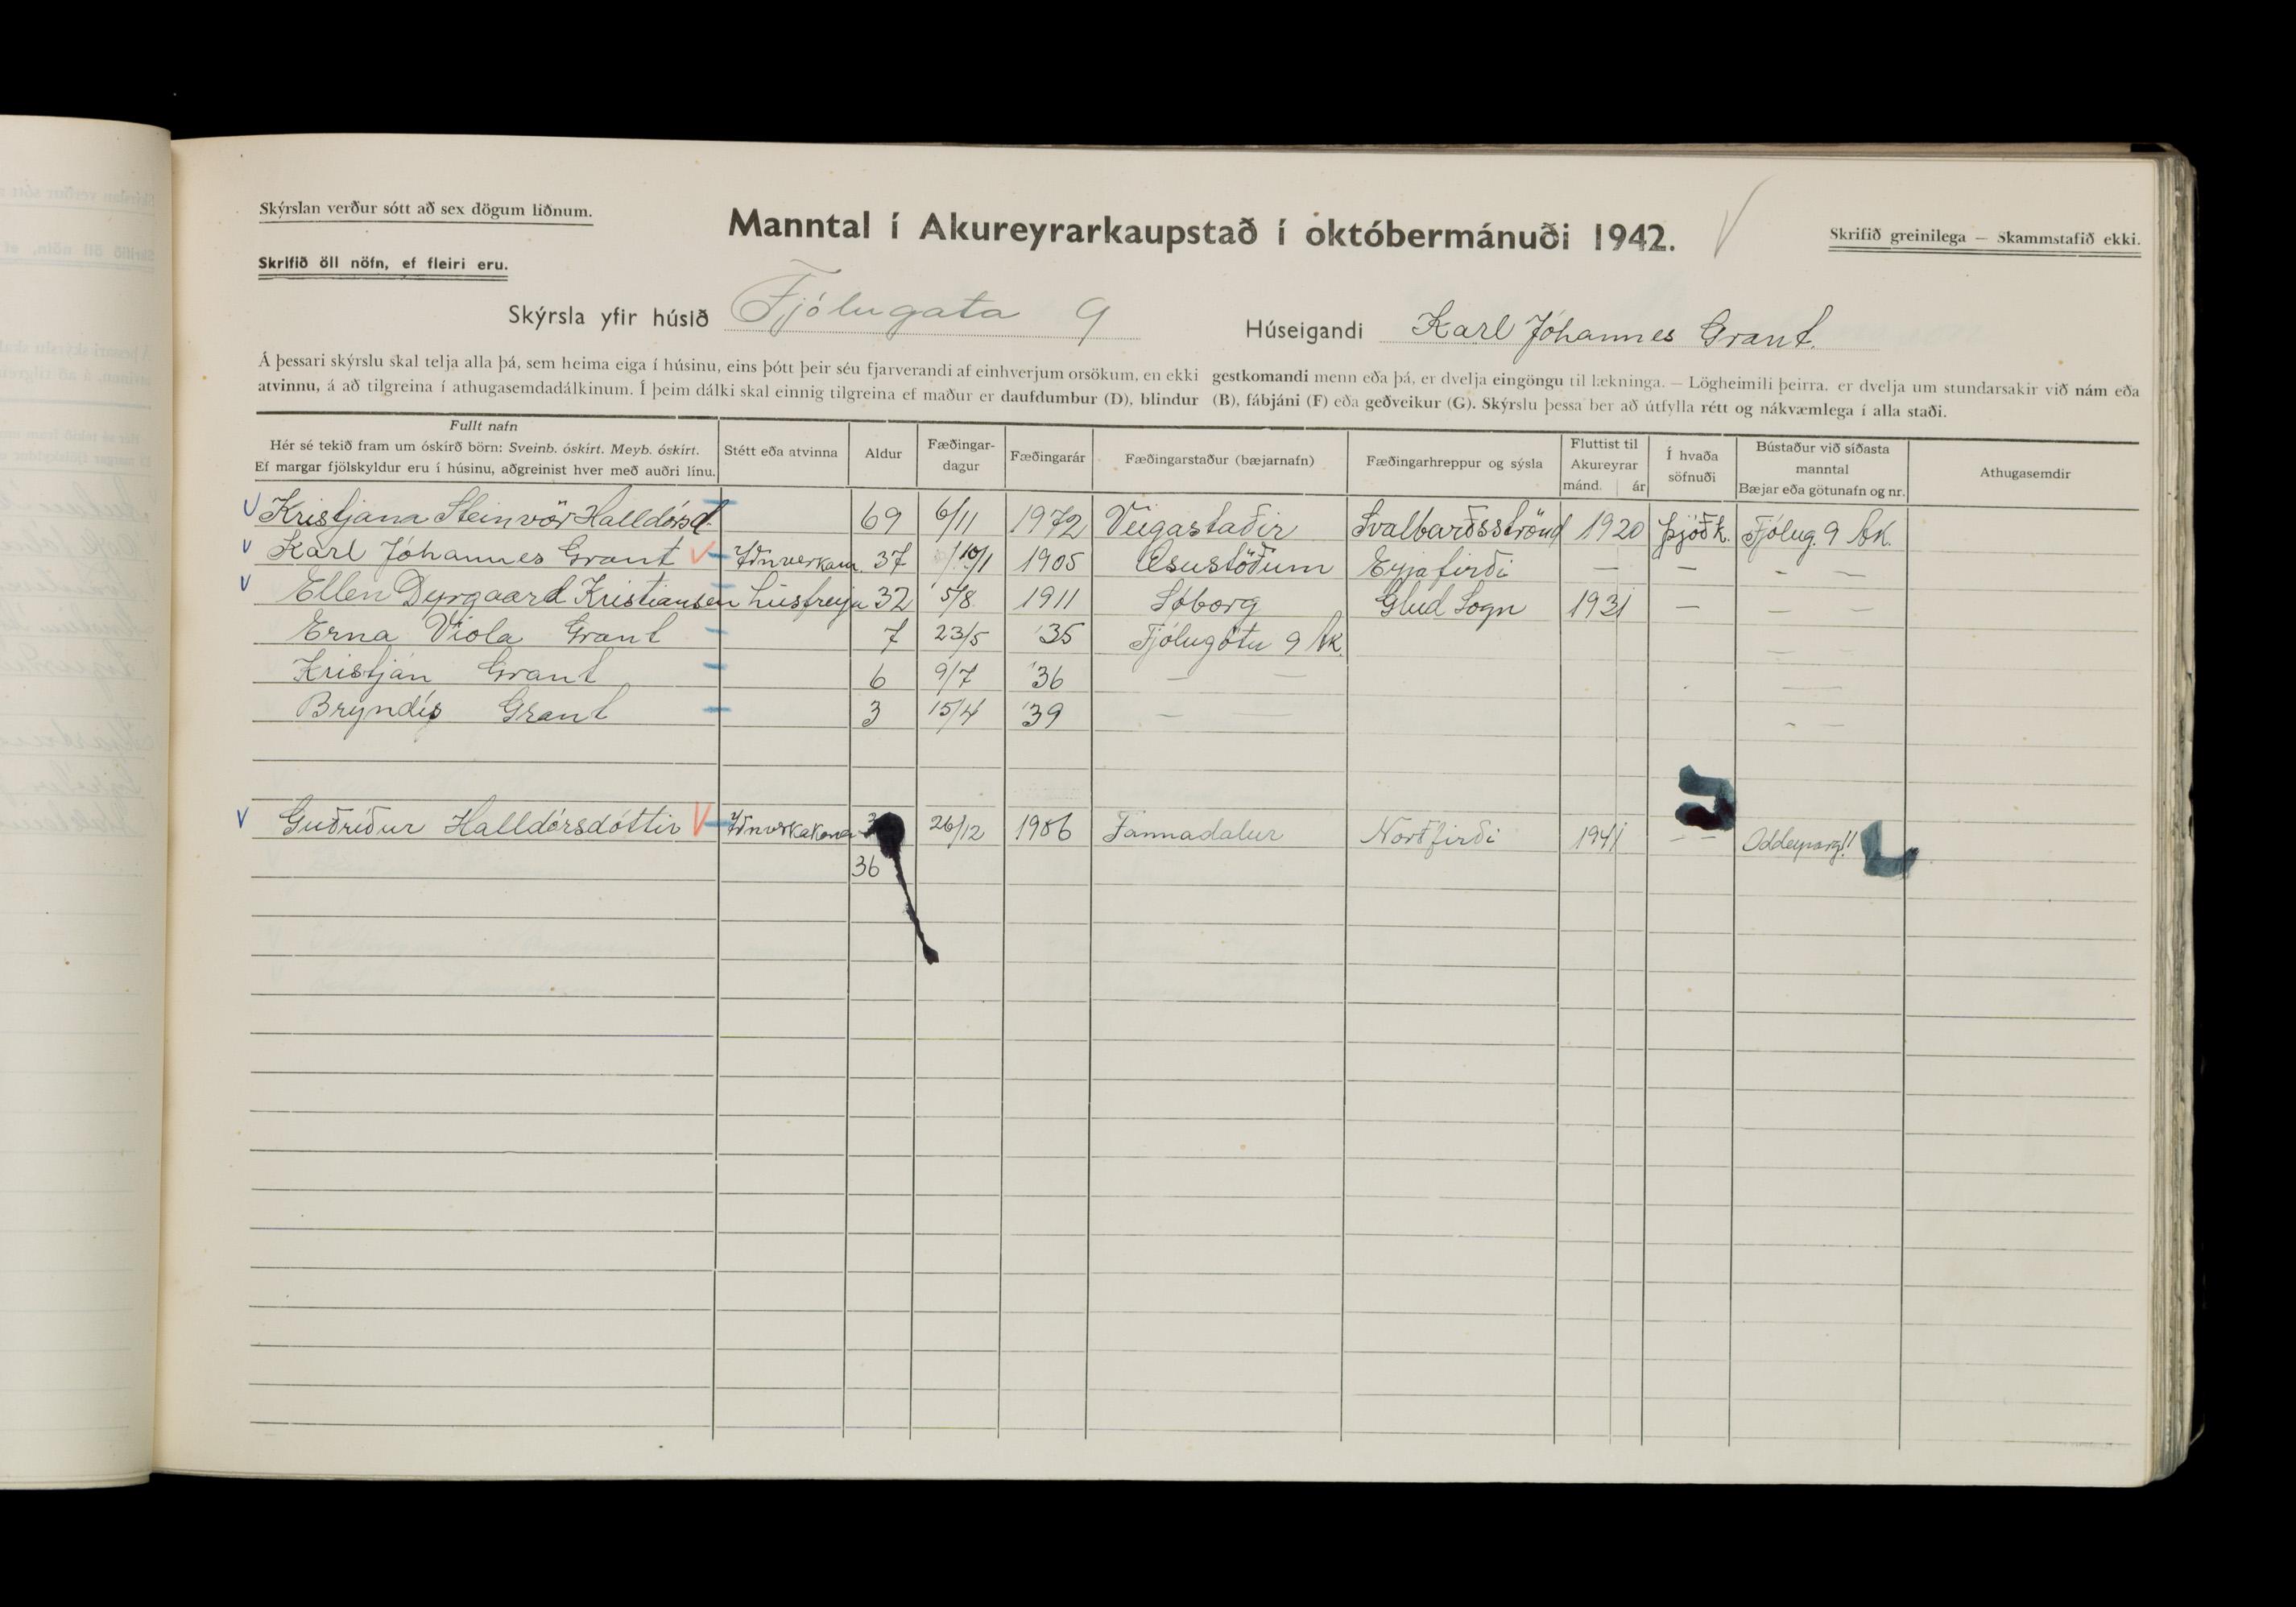 Skýrslan verður sótt að sex dögum liðnum.
Manntal í Akureyrarkaupstað í októbermánuði 1942.
Skrifið greinilega — Skammstafið ekki.
Skrifið öll nöfn, ef fleiri eru.
Skýrsla yfir húsið Fjólugata 9 Húseigandi Karl Jóhannes Grant.
Á þessari skýrslu skal telja alla þá, sem heima eiga í húsinu, eins þótt þeir séu fjarverandi af einhverjum orsökum, en ekki gestkomandi menn eða þá, er dvelja eingöngu til lækninga. — Lögheimili þeirra. er dvelja um stundarsakir við nám eða
atvinnu, á að tilgreina í athugasemdadálkinum. Í þeim dálki skal einnig tilgreina ef maður er daufdumbur (D), blindur (B), fábjáni (F) eða geðveikur (G). Skýrslu þessa ber að útfylla rétt og nákvæmlega í alla staði.
Fullt nafn
Hér sé tekið fram um óskírð börn: Sveinb. óskírt. Meyb. óskírt.
Ef margar fjölskyldur eru í húsinu, aðgreinist hver með auðri línu.
Stétt eða atvinna
Aldur
Fæðingar-
dagur
Fæðingarár
Fæðingarstaður (bæjarnafn)
Fæðingarhreppur og sýsla
Fluttist til
Akureyrar
mánd. ár
Í hvaða
söfnuði
Bústaður við síðasta
manntal
Bæjar eða götunafn og nr.
Athugasemdir
V Kristjana Steinvör Halldórsd. 69 6/11 1972 Veigastaðir Svalbarðsströnd 1920 Þjóðk. Fjólug. 9 Ak.
V Karl Jóhannes Grant V Iðnverkam. 37 10/1 1905 Æsustöðum Eyjafirði — — - —
V Ellen Dyrgaard Kristiansen húsfreyja 32 5/8 1911 Søborg Glud Sogn 1931 — — —
Erna Viola Grant 7 23/5 '35 Fjólugötu 9 Ak. — —
Kristján Grant 6 9/7 '36 — — — —
Bryndís Grant 3 15/4 '39 — - —
V Guðríður Halldórsdóttir V Iðnverkakona 26/12 1906 Fannadalur Norðfirði 1941 - — Oddeyrarg. 11
36